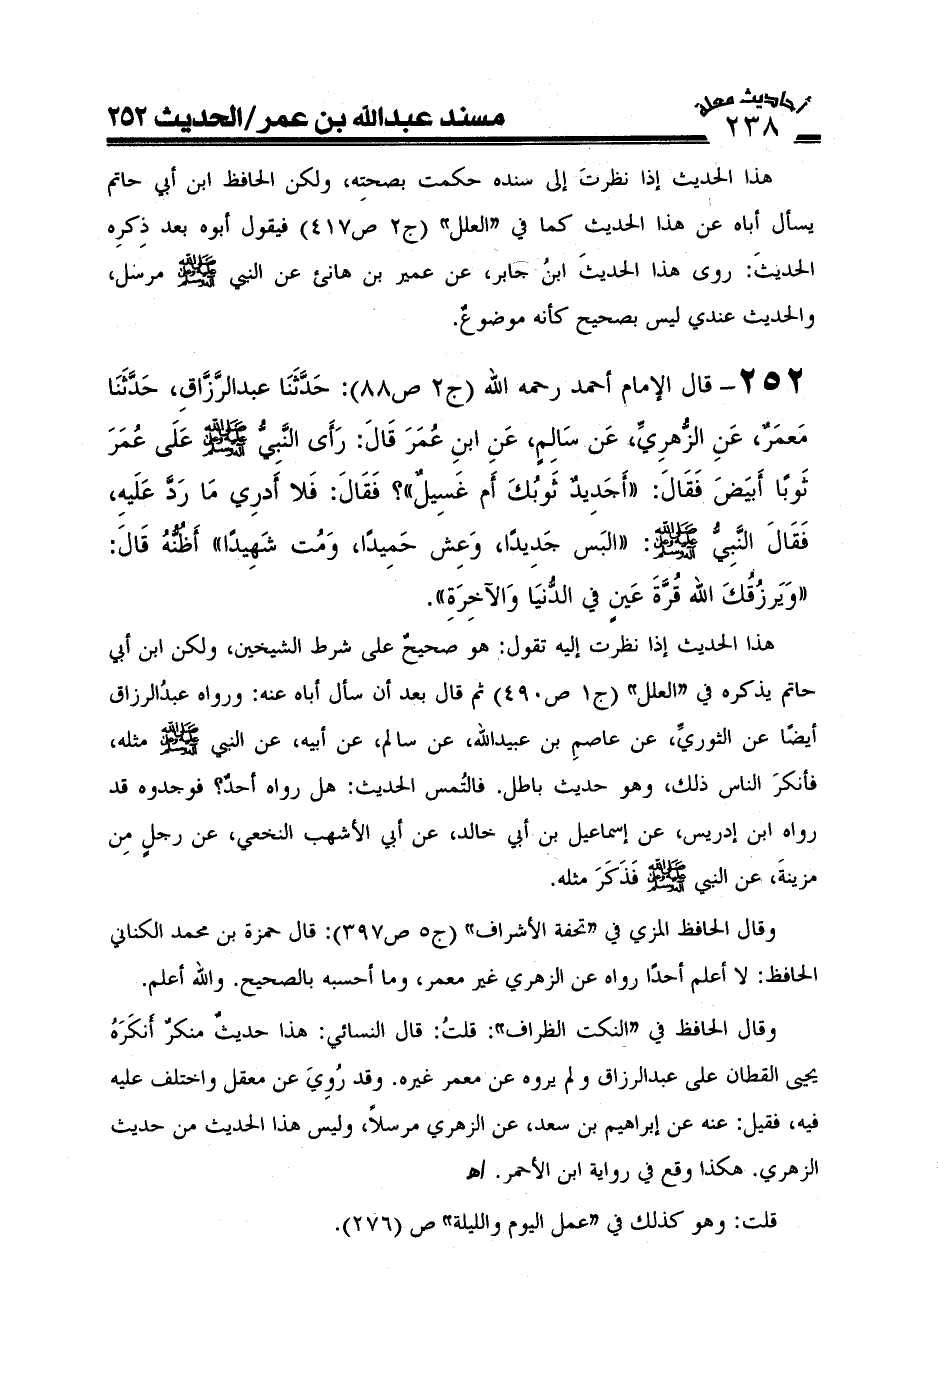 أحاديث معلة
٢٣٨
مسند عبدالله بن عمر/الحديث ٢٥٢
هذا الحديث إذا نظرتَ إلى سنده حكمت بصحتِه، ولكن الحافظ ابن أبي حاتم
يسأل أباه عن هذا الحديث كما في «العلل» (ج٢ ص٤١٧) فيقول أبوه بعد ذِكرِه
الحديثَ: روى هذا الحديثَ ابنُ جابر، عن عمير بن هانئ عن النبي ﷺ مرسل،
والحديث عندي ليس بصحيح كأنه موضوعٌ.
٢٥٢- قال الإمام أحمد رحمه الله (ج٢ ص٨٨): حَدَّثَنَا عبدالرَّزَّاقِ، حَدَّثَنَا
مَعمَرٌ، عَنِ الزُّهرِيِّ، عَن سَالِمٍ، عَنِ ابنِ عُمَرَ قَالَ: رَأَى النَّبِيُّ ﷺ عَلَى عُمَرَ
ثَوبًا أَبيَضَ فَقَالَ: «أَجَدِيدٌ ثَوبُكَ أَم غَسِيلٌ»؟ فَقَالَ: فَلا أَدرِي مَا رَدَّ عَلَيهِ،
فَقَالَ النَّبِيُّ ﷺ: «البَس جَدِيدًا، وَعِش حَمِيدًا، وَمُت شَهِيدًا» أَظُنُّهُ قَالَ:
«وَيَرزُقُكَ الله قُرَّةَ عَينٍ فِي الدُّنيَا وَالآخِرَةِ».
هذا الحديث إذا نظرت إليه تقول: هو صحيحٌ على شرط الشيخين، ولكن ابن أبي
حاتم يذكره في «العلل» (ج١ ص٤٩٠) ثم قال بعد أن سأل أباه عنه: ورواه عبدُالرزاق
أيضًا عن الثوريِّ، عن عاصمِ بن عبيدالله، عن سالم، عن أبيه، عن النبي ﷺ مثله،
فأنكرَ الناس ذلك، وهو حديث باطل. فالتُمس الحديث: هل رواه أحدٌ؟ فوجدوه قد
رواه ابن إدريس، عن إسماعيل بن أبي خالد، عن أبي الأشهب النخعي، عن رجلٍ مِن
مزينةَ، عن النبي ﷺ فَذَكَرَ مثله.
وقال الحافظ المزي في «تحفة الأشراف» (ج٥ ص٣٩٧): قال حمزة بن محمد الكناني
الحافظ: لا أعلم أحدًا رواه عن الزهري غير معمر، وما أحسبه بالصحيح. والله أعلم.
وقال الحافظ في «النكت الظراف»: قلتُ: قال النسائي: هذا حديثٌ منكرٌ أَنكَرَهُ
يحيى القطان على عبدالرزاق و لم يروه عن معمر غيره. وقد رُوِيَ عن معقل واختلف عليه
فيه، فقيل: عنه عن إبراهيم بن سعد، عن الزهري مرسلاً، وليس هذا الحديث من حديث
الزهري. هكذا وقع في رواية ابن الأحمر. اﻫ
قلت: وهو كذلك في «عمل اليوم والليلة» ص (٢٧٦).